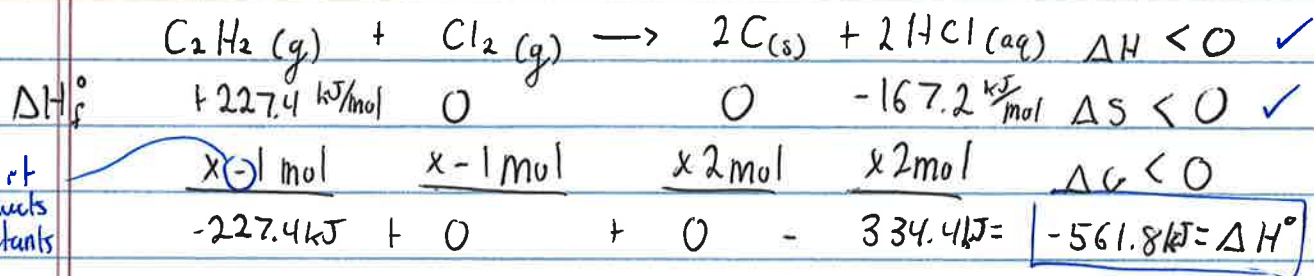 C₂H₂ (g) + Cl₂ (g) → 2C(s) + 2HCl (aq) ΔH < 0 ✓
ΔH°f +227.4 kJ/mol 0 0 -167.2 kJ/mol ΔS < 0 ✓
x-1 mol x-1 mol x 2 mol x 2 mol ΔG < 0
-227.4 kJ + 0 + 0 - 334.4 kJ = -561.8 kJ = ΔH°